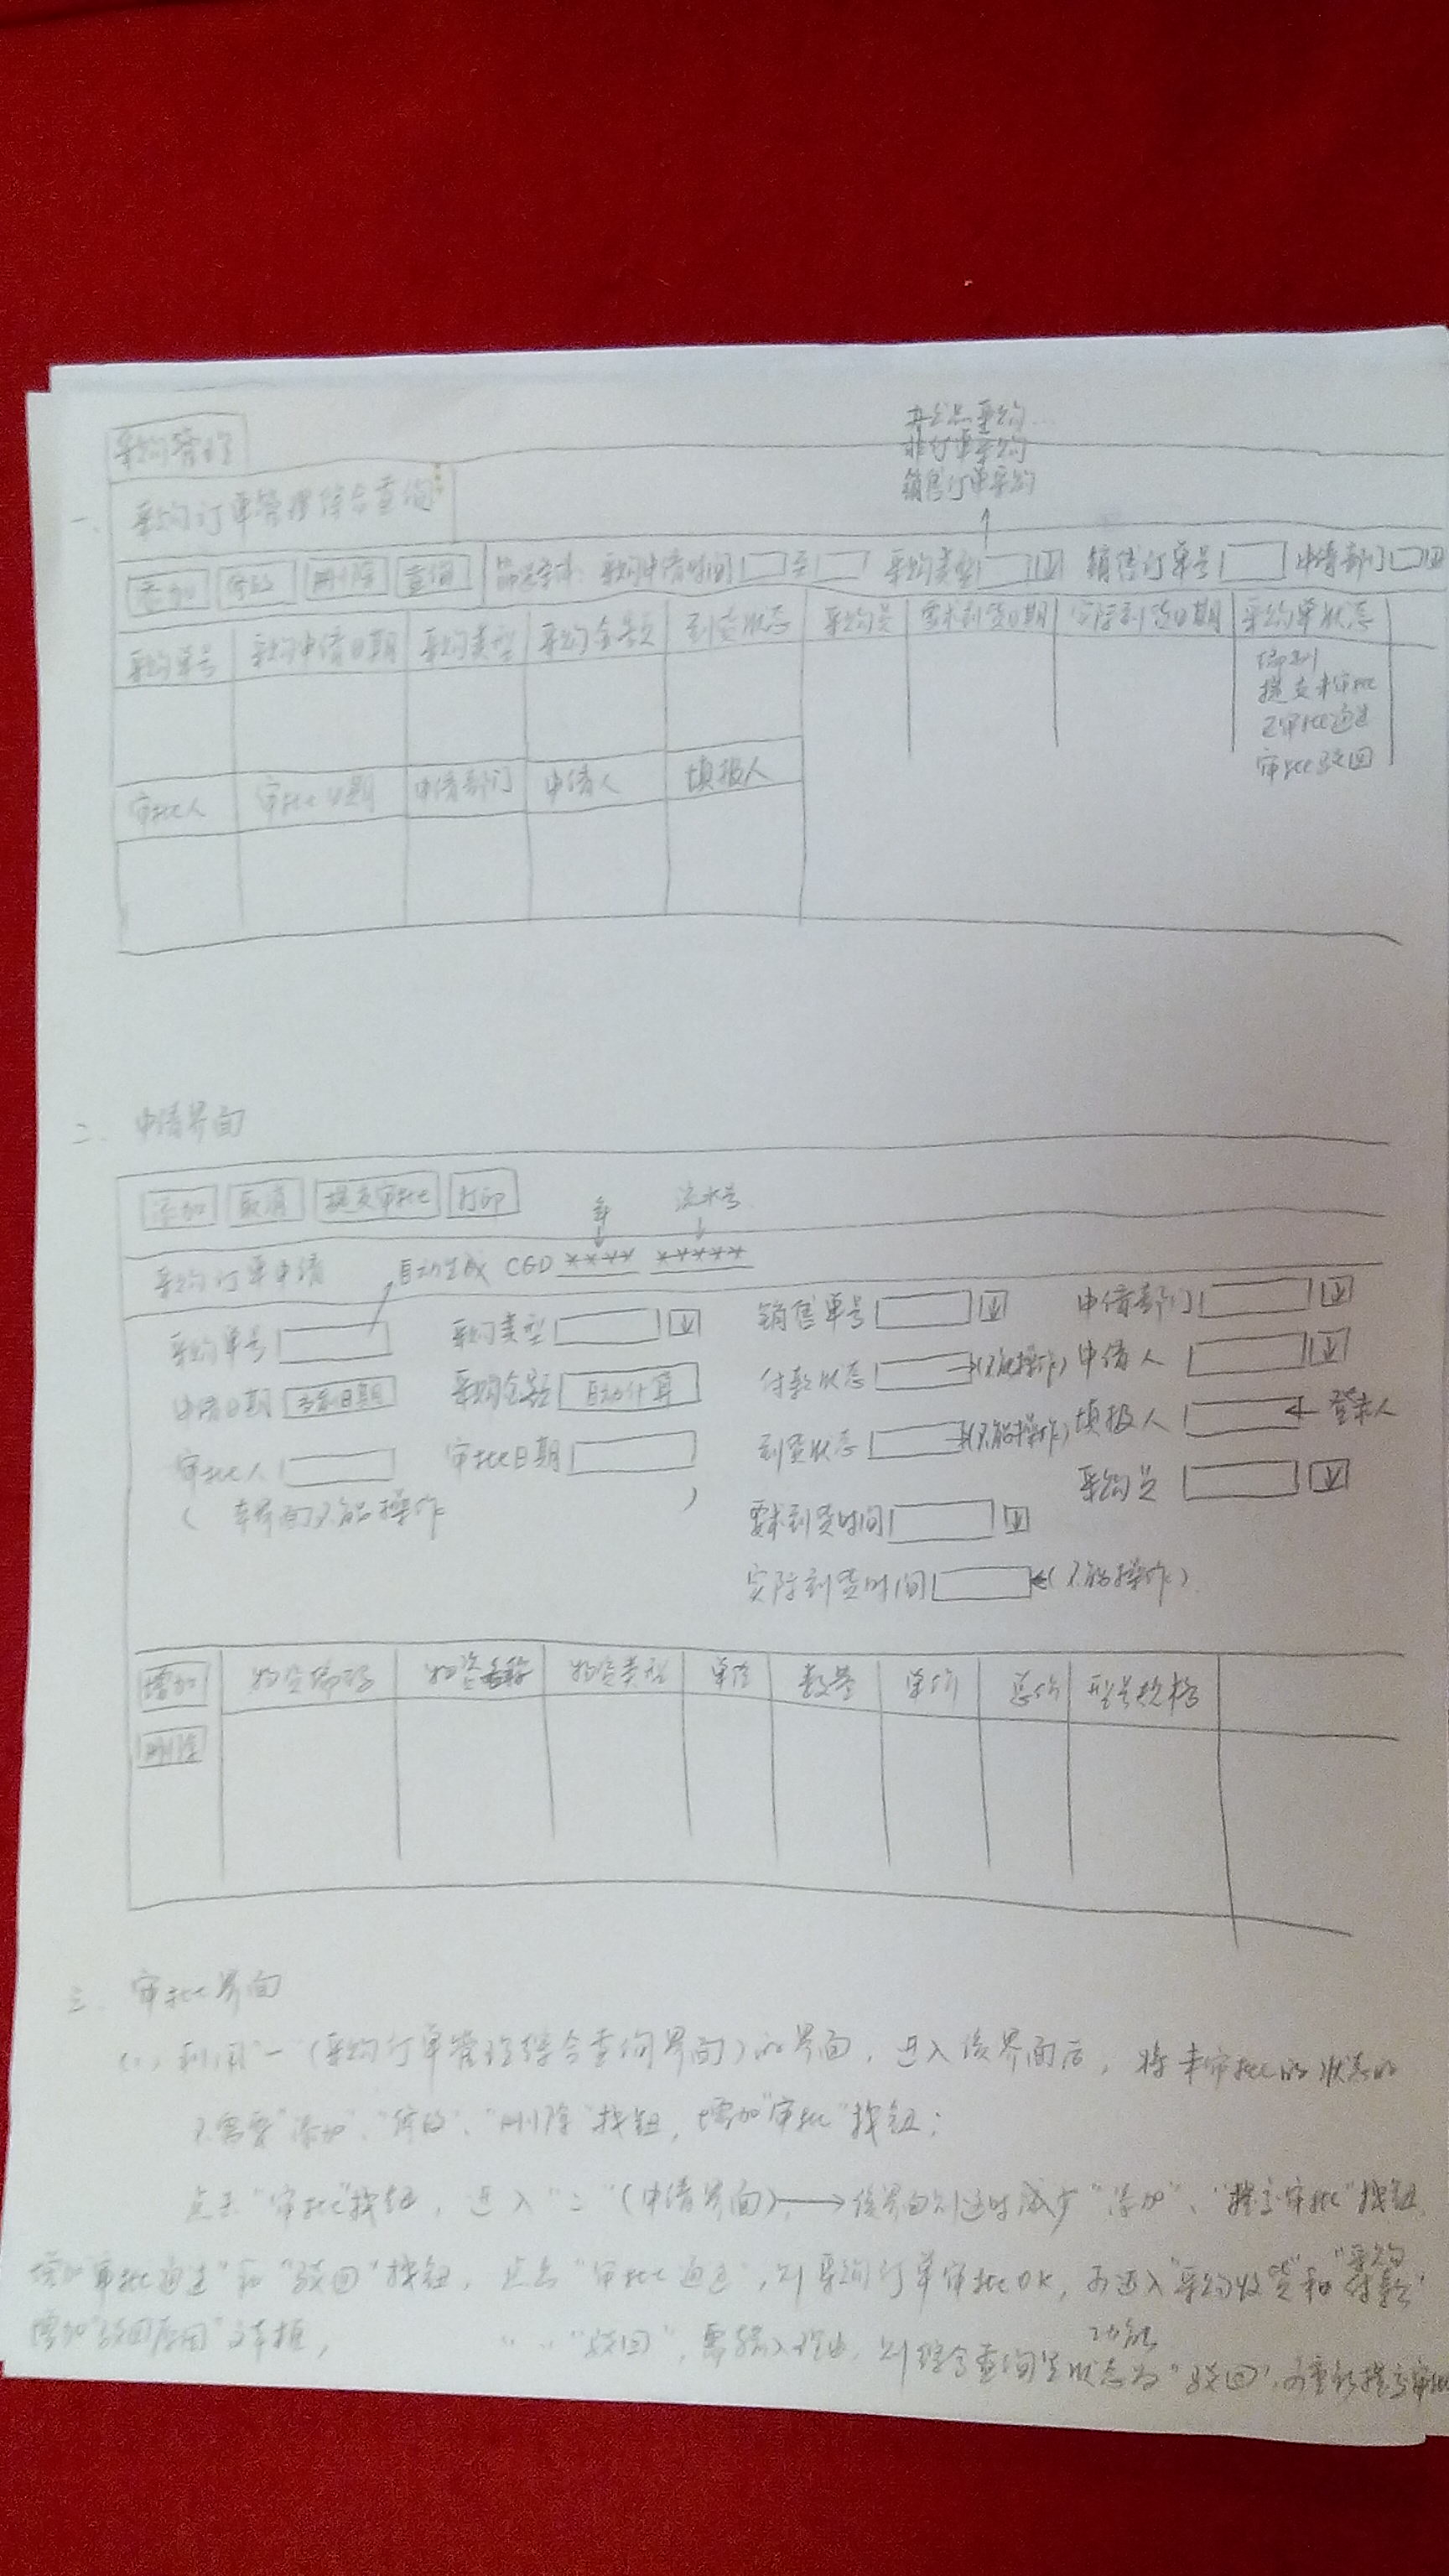 采购管理
办公品采购...
非订单采购
销售订单采购
一、采购订单管理综合查询
添加 修改 删除 查询 采购申请时间 至 采购类型 销售订单号 申请部门
采购单号 采购申请日期 采购类型 采购金额 到货状态 采购员 要求到货日期 实际到货日期 采购单状态
编制
提交未审批
已审批通过
审批驳回
审批人 审批日期 申请部门 申请人 填报人
二、申请界面
添加 取消 提交审批 打印
年 流水号
采购订单申请 自动生成 CGD **** *****
采购单号 采购类型 销售单号 申请部门
申请日期 当前日期 采购金额 自动计算 付款状态 (不能操作) 申请人
审批人 审批日期 到货状态 (不能操作) 填报人 登录人
( 本界面不能操作 ) 采购员
要求到货时间
实际到货时间 (不能操作)
增加 物资编码 物资名称 物资类型 单位 数量 单价 总价 型号规格
删除
三、审批界面
(1) 利用"一"(采购订单管理综合查询界面)的界面,进入该界面后,将未审批的状态的
不需要"添加"、"修改"、"删除"按钮,增加"审批"按钮;
点击"审批"按钮,进入"二"(申请界面),→该界面则适时减少"添加"、"提交审批"按钮,
增加"审批通过"和"驳回"按钮,点击"审批通过",则采购订单审批OK,可进入"采购收货"和"采购付款"
功能
增加"驳回原因"文本框, " " "驳回",需输入理由,则综合查询里状态为"驳回",可重新提交审批